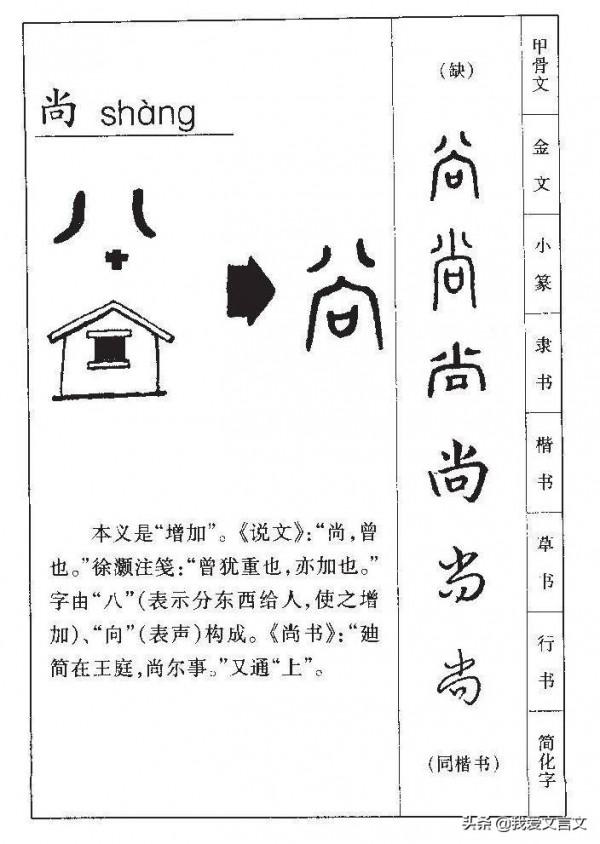 尚 shàng
本义是“增加”。《说文》:“尚,曾
也。”徐灏注笺:“曾犹重也,亦加也。”
字由“八”(表示分东西给人,使之增
加)、“向”(表声)构成。《尚书》:“廸
简在王庭,尚尔事。”又通“上”。
(缺)
尚
尚
尚
尚
尚
尚
(同楷书)
甲骨文
金文
小篆
隶书
楷书
草书
行书
简化字
头条@我爱文言文